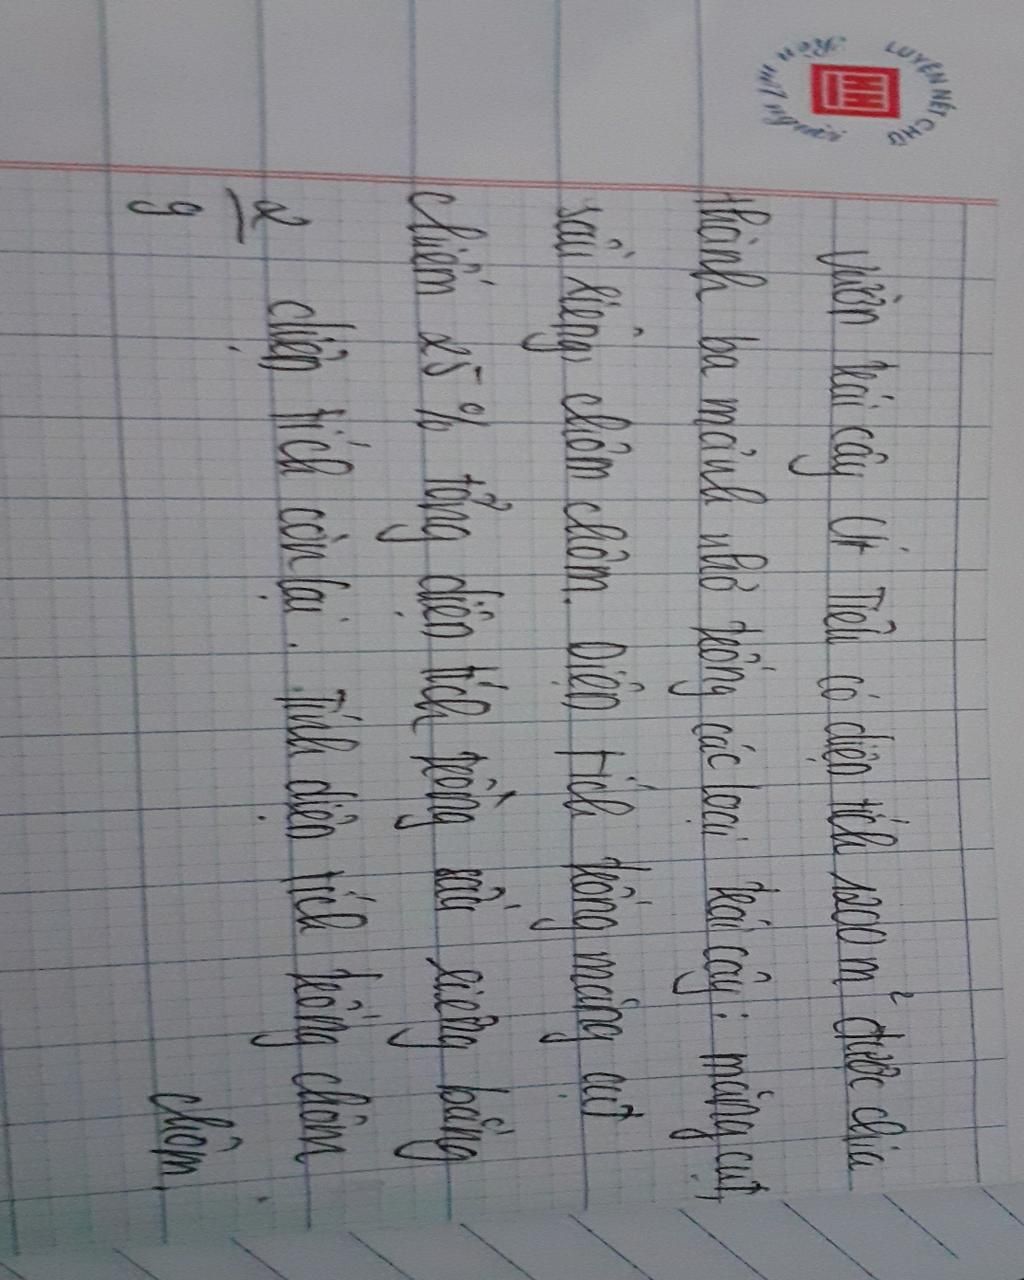 LUYỆN NÉT CHỮ
Rèn nết người
Vườn trái cây Út Tiểu có diện tích 1200 m² được chia
thành ba mảnh nhỏ trồng các loại trái cây: măng cụt,
sầu riêng, chôm chôm. Diện tích trồng măng cụt
chiếm 25% tổng diện tích trồng sầu riêng bằng
2/9 diện tích còn lại. Tính diện tích trồng chôm
chôm.